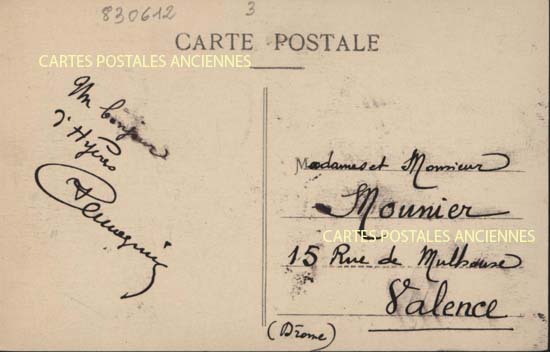 830612
3
CARTE POSTALE
CARTES POSTALES ANCIENNES
Un bonjour
d'Hyères
M adames et Monsieur
Mounier
CARTES POSTALES ANCIENNES
15 Rue de Mulhouse
Valence
(Drome)